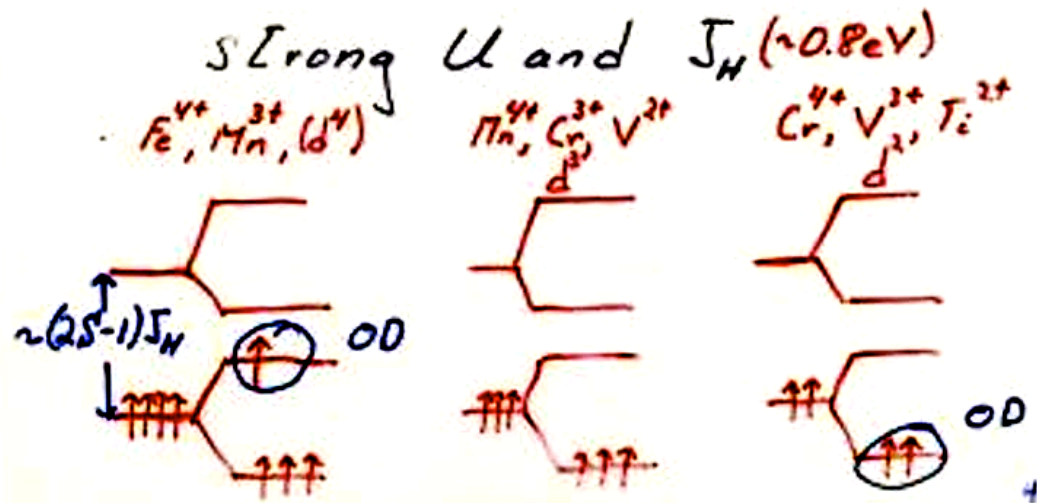 Strong U and J_H (~0.8eV)
Fe⁴⁺, Mn³⁺, (d⁴)
Mn⁴⁺, Cr³⁺, V²⁺
d³
Cr⁴⁺, V³⁺, Ti²⁺
d²
~(2S-1)J_H
OD
OD
4